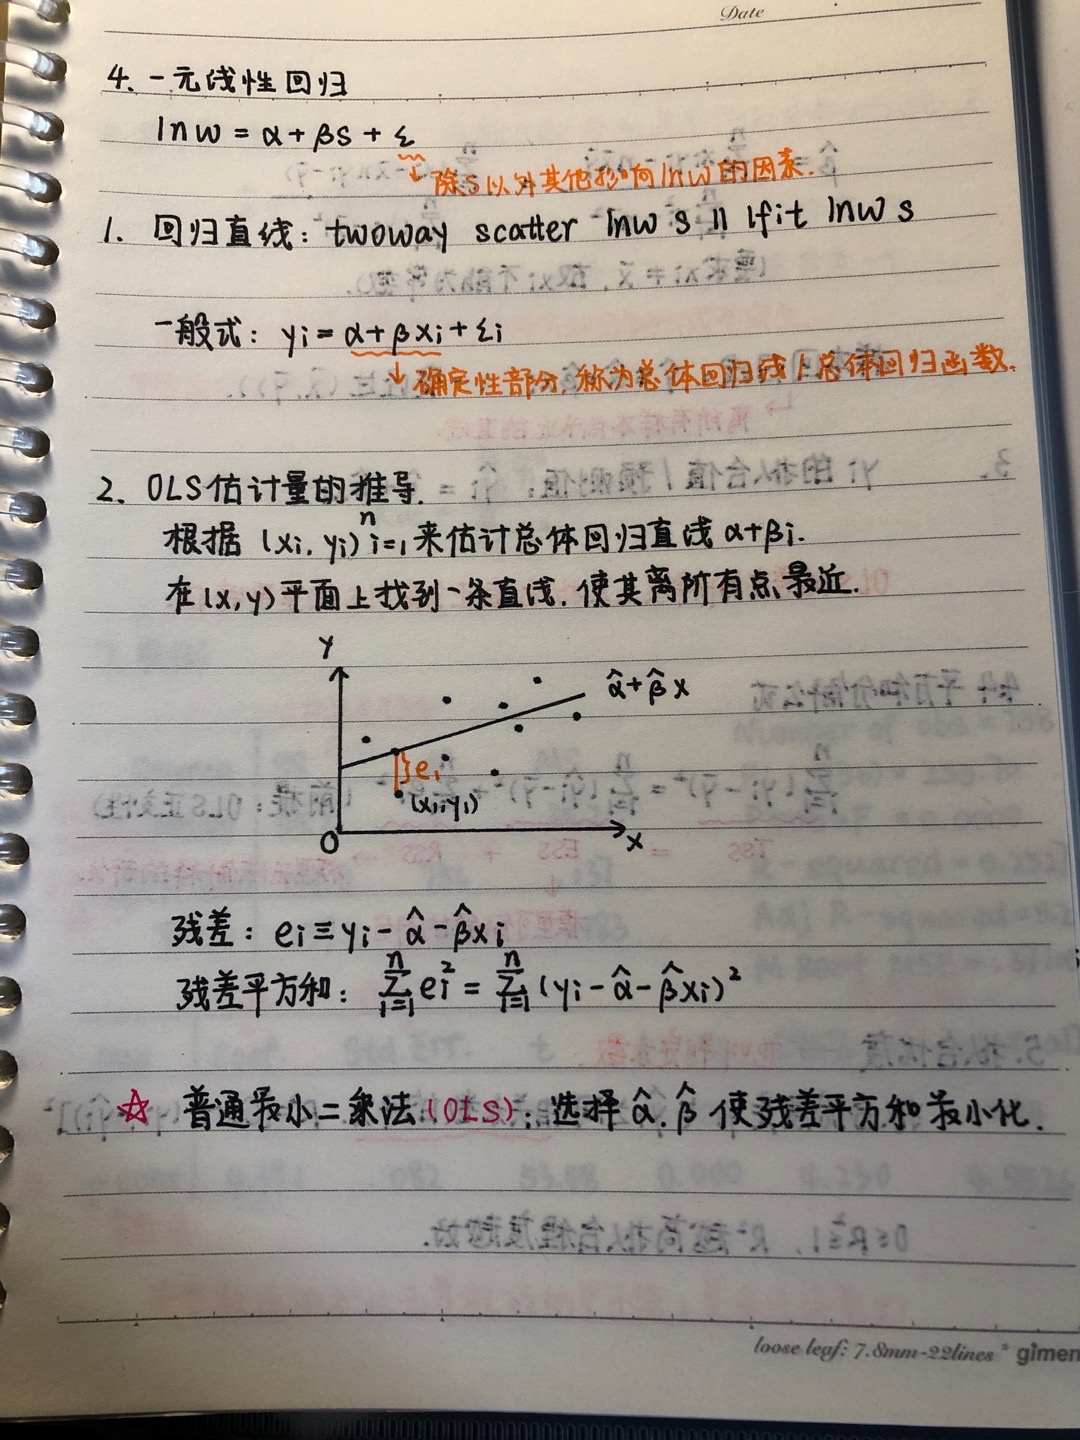 Date
4. 一元线性回归
lnw = α + βs + ε
↓ 除s以外其他影响lnw的因素.
1. 回归直线: twoway scatter lnw s || lfit lnw s
一般式: yi = α + βxi + εi
↓ 确定性部分, 称为总体回归线 / 总体回归函数.
2. OLS估计量的推导.
根据 (xi, yi)ⁿi=1 来估计总体回归直线 α+βi.
在(x,y)平面上找到一条直线, 使其离所有点最近.
y
α̂+β̂x
}e1
(x1,y1)
O x
残差: ei ≡ yi - α̂ - β̂xi
残差平方和: Σⁿi=1 ei² = Σⁿi=1 (yi - α̂ - β̂xi)²
☆ 普通最小二乘法(OLS): 选择 α̂, β̂ 使残差平方和最小化.
loose leaf: 7.8mm-22lines * gimen